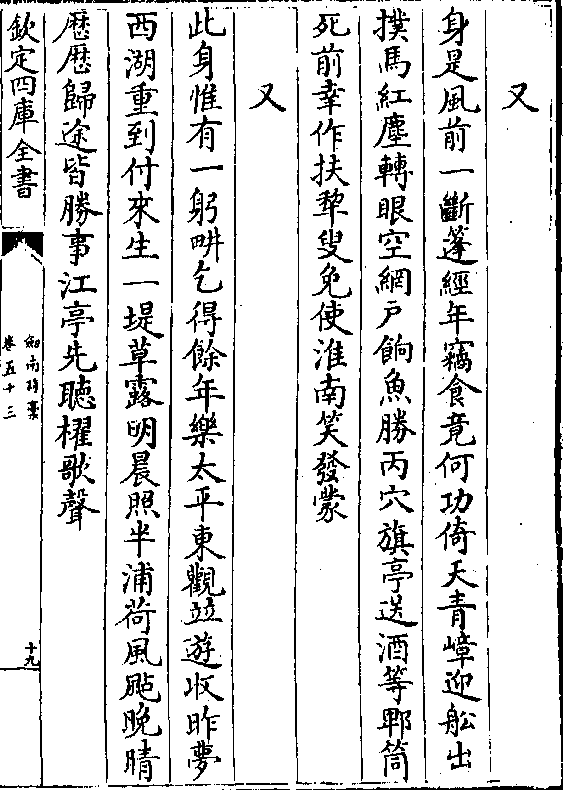 又
身是風前一斷蓬經年竊食竟何功倚天青嶂迎船出
撲馬紅塵轉眼空網戸餉魚勝丙穴旗亭送酒等郫筒
死前幸作扶犂叟免使淮南笑發蒙
又
此身惟有一躬畊乞得餘年樂太平東觀並遊收昨夢
西湖重到付來生一堤草露明晨照半浦荷風颭晚晴
歴歴歸途皆勝事江亭先聽櫂歌聲
欽定四庫全書
劍南詩藁
卷五十三
十九